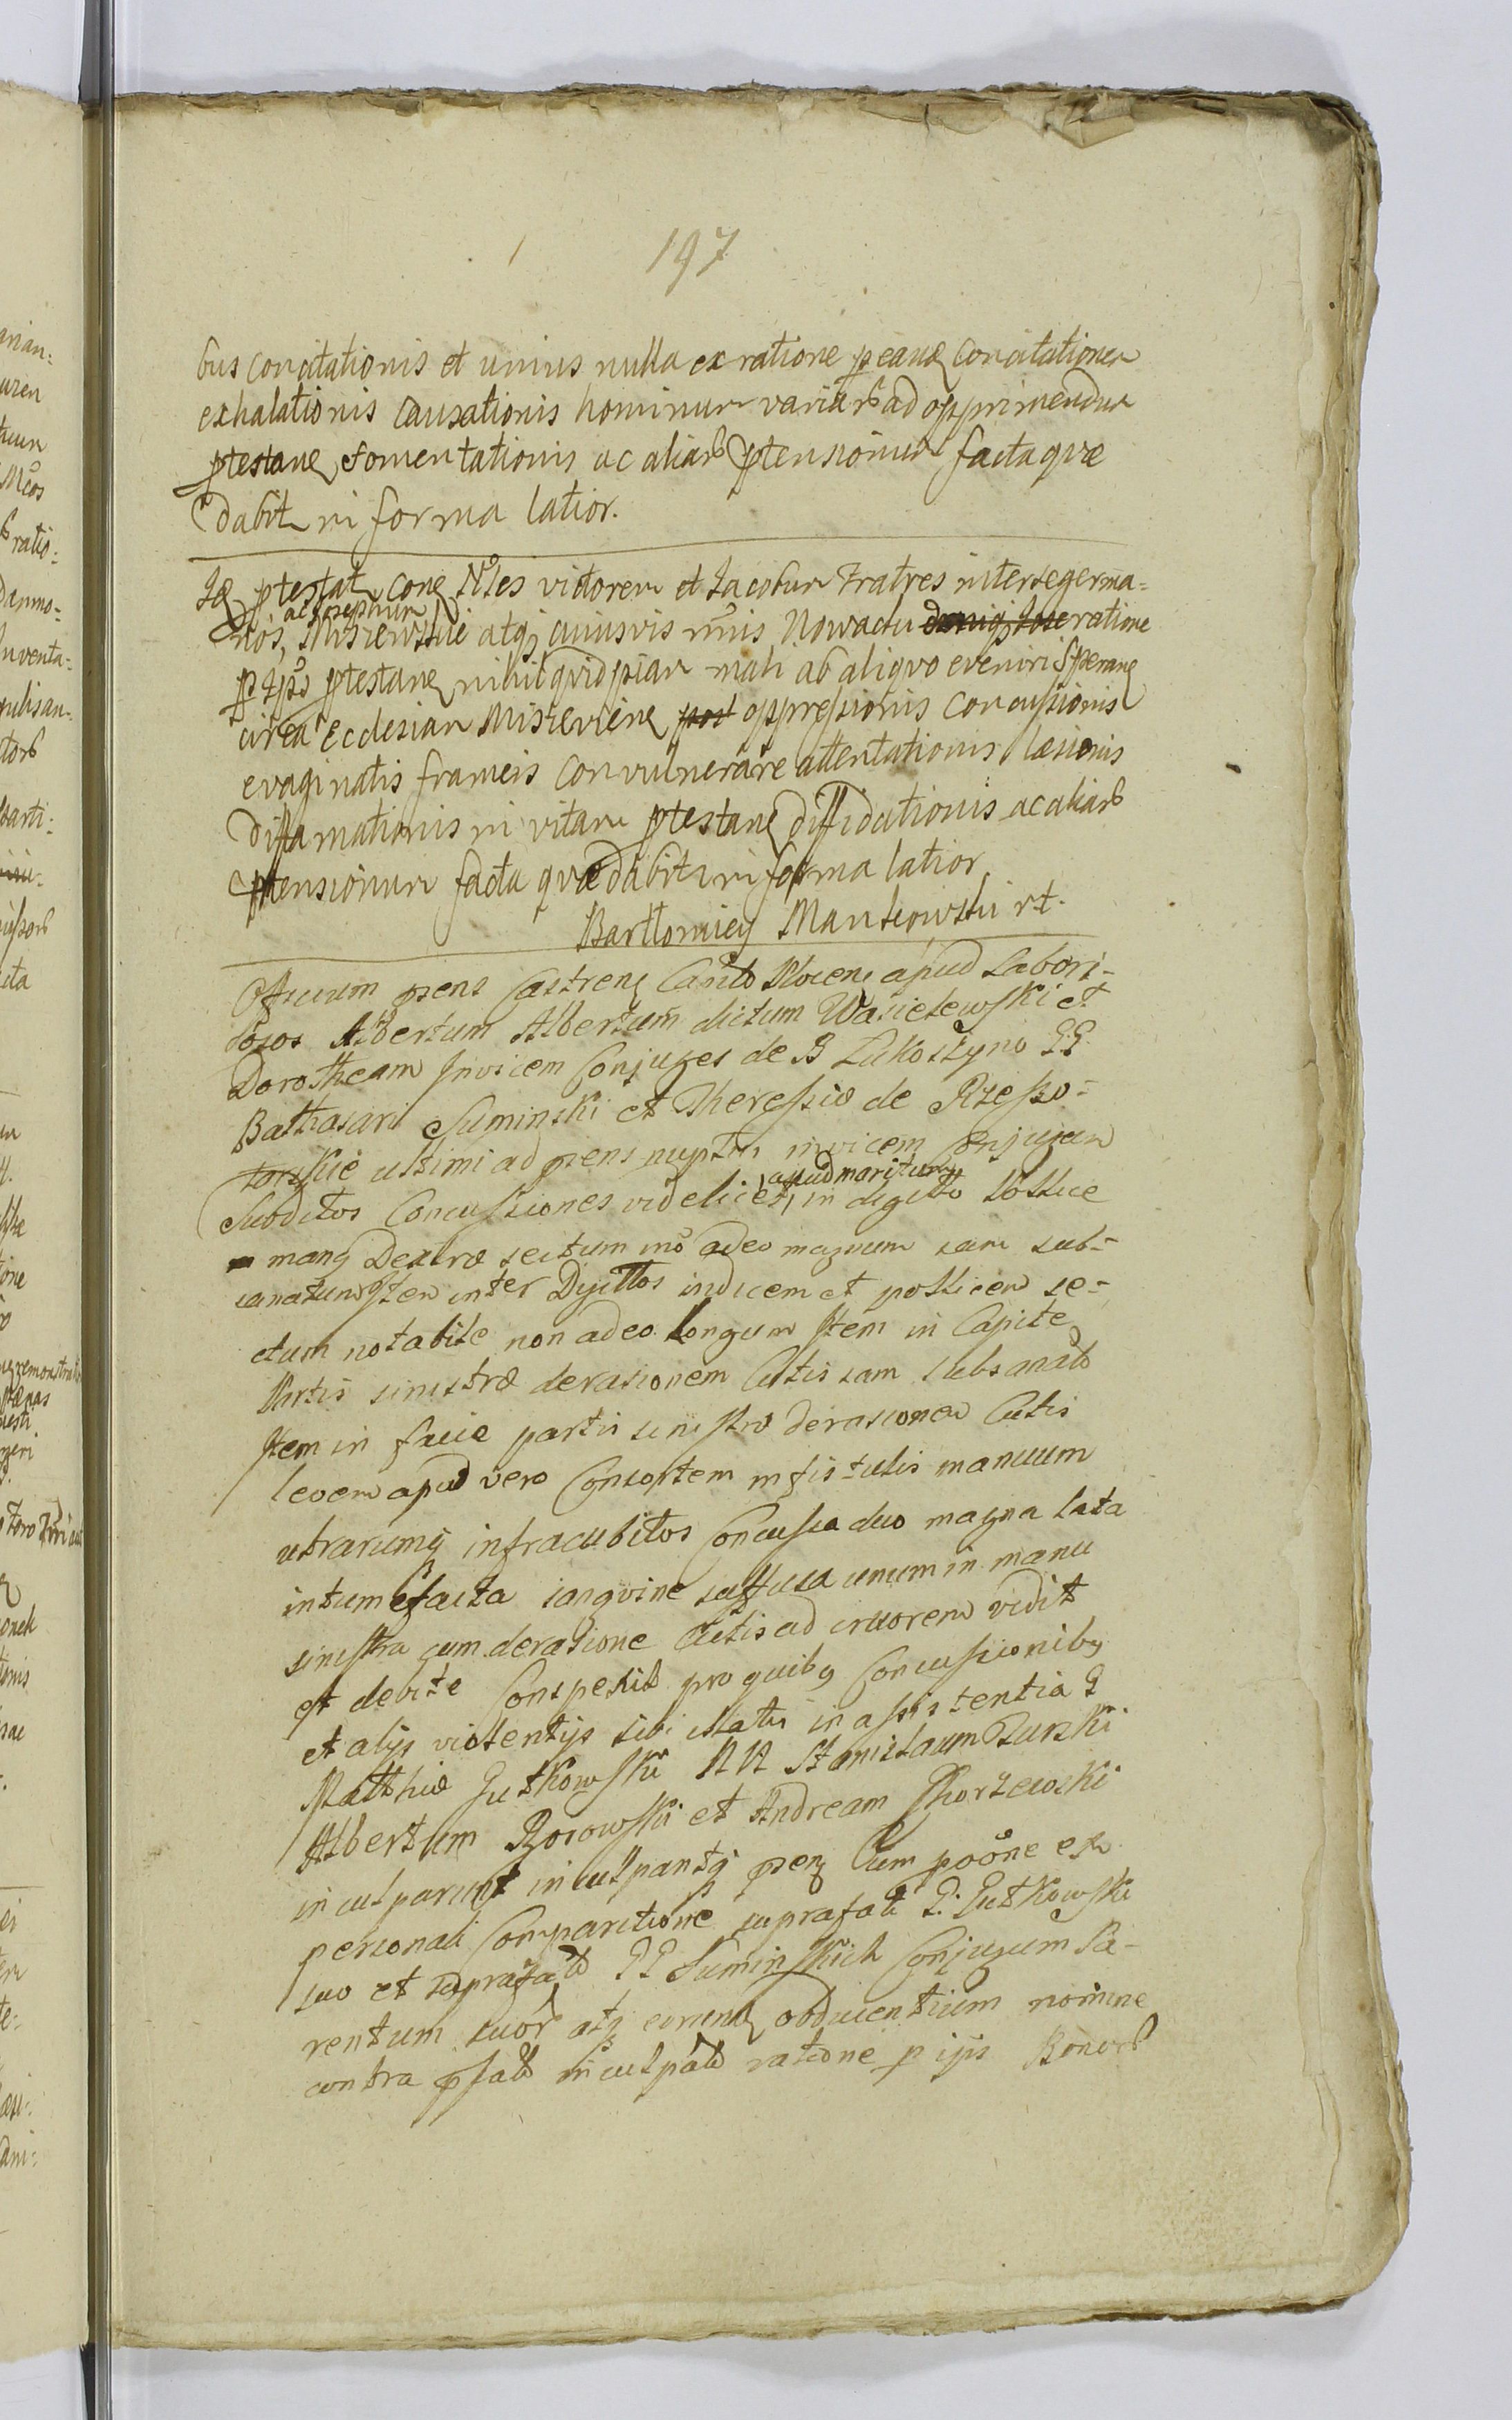 197
bus concitationis et unius nulla ex ratione peane concitationem
exhalationis causationis hominum variarb ad opprimendum
ptestane fomentationis ac aliarb ptensionum facta quæ
dabit in forma latior.
Id ptestat cone Nles victorem et Jacobum Fratres inter se germa=
ac Josephum
nos, Misiewskie atq cuiusvis mis Nowacku ratione
ptestane nihil quidpiam mali ab aliquo eveniri Sperane
circa Ecclesiam post oppressionis concussionis
evaginatis frameis convulnerare attentationis læsionis
diffamationis in vitam ptestane diffidationis ac aliarb
ptensionum facta quæ dabit in forma latior
Bartlomiey Mankowski rt.
Officium psens Castrens Capit Plocens apud Labori-
osos Albertum Albertum dictum Wasielewski et
Dorotheam Invicem Conjuges de B Lukoszyno GG
Balthasari Suminski et Theressiæ de Rzesso=
torskie ultimi ad psens nuptæ invicem conjugum
apud maritum
Subditos Concussiones videlicet, in digito Pollice
manq Dextræ sectum mo adeo magnum iam sub=
sanatum Item inter Digittos indicem et pollicem se=
ctum notabile non adeo longum Item in Capite
Partis sinistræ derasionem Cutis iam subsanata
Item in facie partis sinistræ derasionem Cutis
levem apud vero Consortem in fistulis manuum
utrarumq infracubitos Concussa duo magna lata
intumefacta sangvine suffusa unum in manu
sinistra cum derasione Cutis ad cruorem vidit
et debite Conspexit pro quibq Concussionibq
et alijs violentijs sibi illatis in assistentia G
Matthiæ Gutkowski NN Stanislaum Turski
Albertum Rosowski et Andream Skorzewski
inculparunt inculpantq psens Cum poone ex
personali Comparitione suprafati G. Gutkowski
suo et suprafatt GG Suminskich Conjugum Pa-
rentum suor atq eorund obducentium nomine
contra pfatt inculpatt ratione p ijs Bonorb